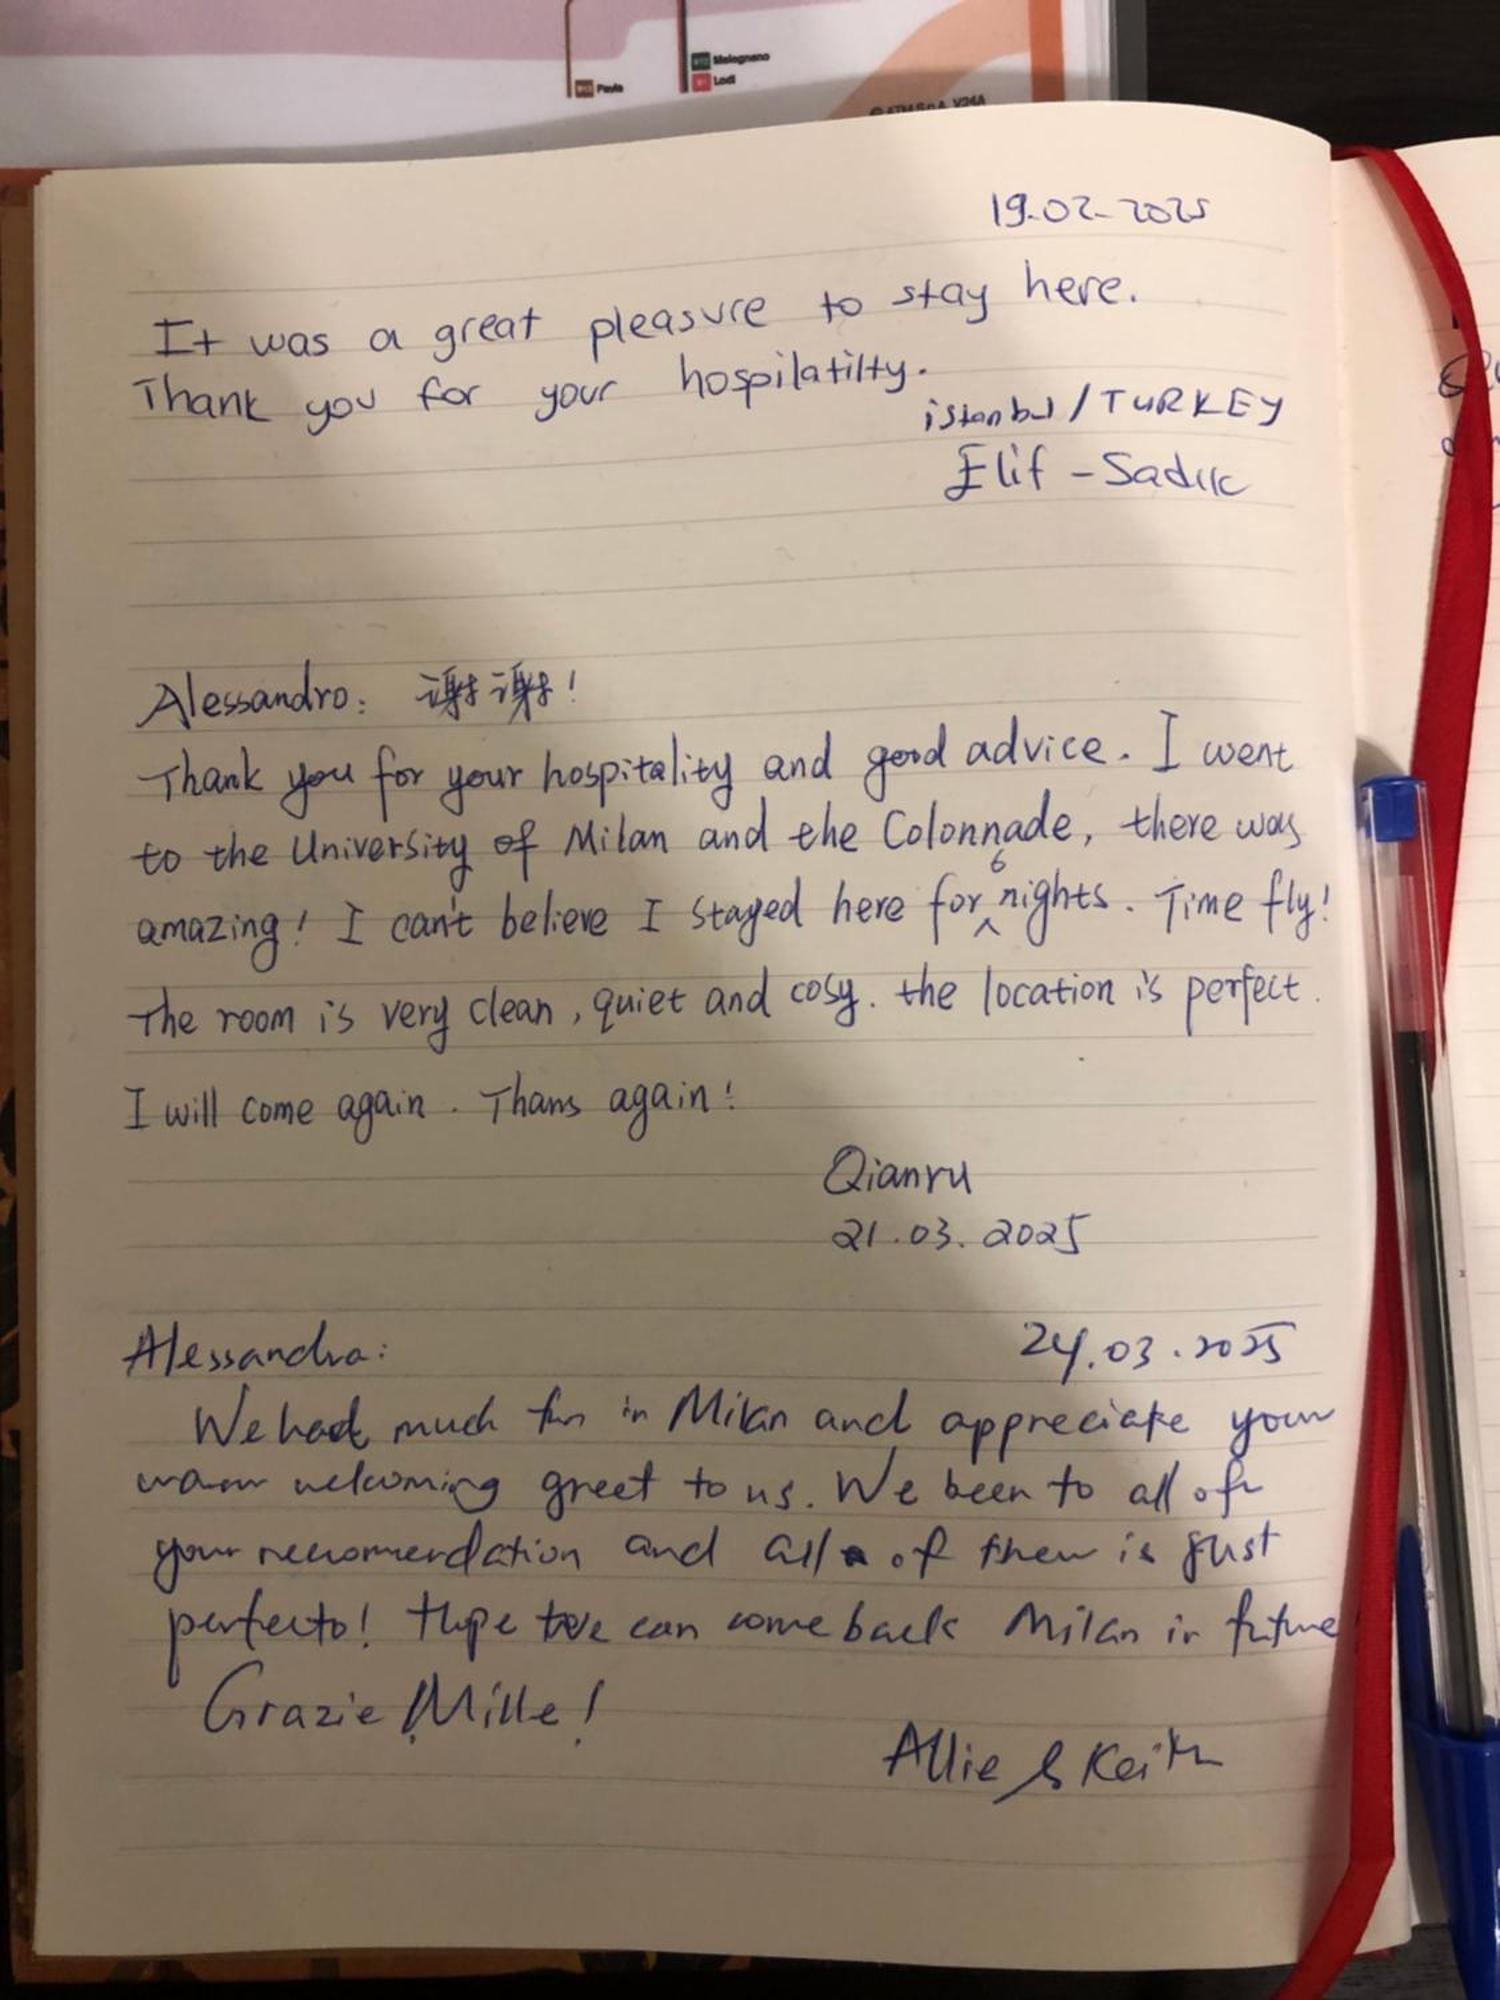 Melegnano
Pavia
Lodi
© ATM S.p.A. V24A
19-02-2025
It was a great pleasure to stay here.
Thank you for your hospilatilty.
istanbul/TURKEY
Elif - Sadık
Alessandro: 谢谢!
Thank you for your hospitality and good advice. I went
to the University of Milan and the Colonnade, there was
amazing! I can't believe I stayed here for 6 nights. Time fly!
The room is very clean, quiet and cosy. the location is perfect.
I will come again. Thans again!
Qianru
21.03.2025
Alessandro:
24.03.2025
We had much fun in Milan and appreciate your
warm welcoming greet to us. We been to all of
your recomendation and all of them is just
perfecto! Hope we can come back Milan in future
Grazie Mille!
Allie & Keith